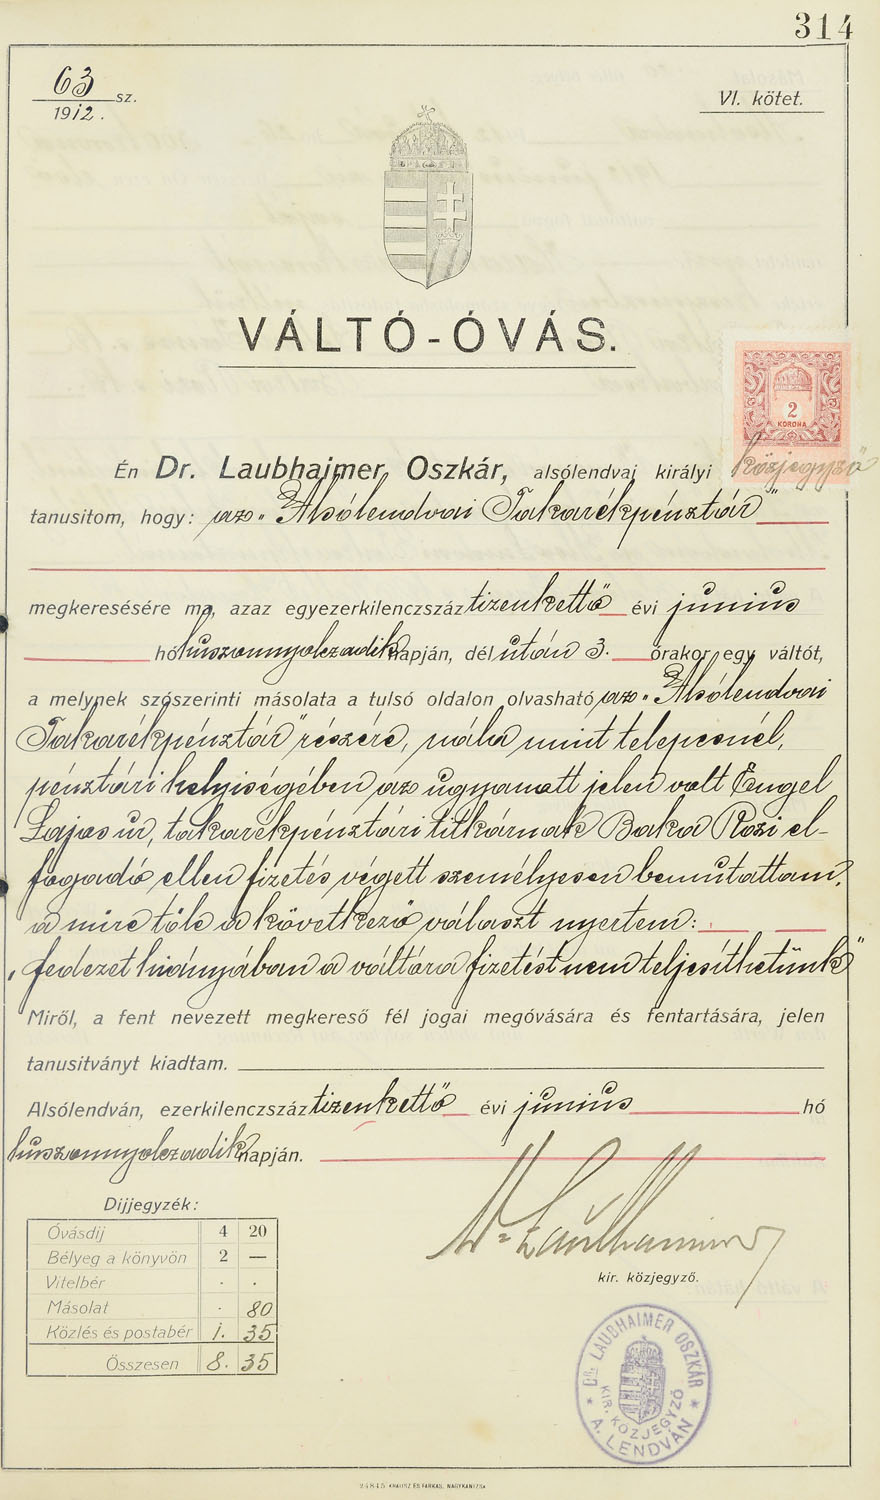 314
63 sz.
1912.
VI. kötet.
VÁLTÓ-ÓVÁS.
2
KORONA
Én Dr. Laubhaimer Oszkár, alsólendvai királyi közjegyző
tanusitom, hogy: az „Alsólendvai Takarékpénztár”
megkeresésére ma, azaz egyezerkilenczszáz tizenkettő évi junius
hó huszonnyolczadik napján, dél után 3. órakor egy váltót,
a melynek szószerinti másolata a tulsó oldalon olvasható az „Alsólendvai
Takarékpénztár” részére, nála mint telepesnél,
pénztári helyiségében az ugyanott jelen volt Engel
Lajos ur, takarékpénztári titkárnak Baka Rozi el-
fogadó ellen fizetés végett személyesen bemutattam,
a mire tőle a következő választ nyertem:
„fedezet hiányában a váltóra fizetést nem teljesíthetünk”
Miről, a fent nevezett megkereső fél jogai megóvására és fentartására, jelen
tanusitványt kiadtam.
Alsólendván, ezerkilenczszáz tizenkettő évi junius hó
huszonnyolczadik napján.
Dijjegyzék:
Óvásdij 4 20
Bélyeg a könyvön 2 —
Vitelbér . .
Másolat . 80
Közlés és postabér 1. 35
Összesen 8. 35
Dr Laubhaimer
kir. közjegyző.
DR. LAUBHAIMER OSZKÁR
KIR. KÖZJEGYZŐ
* A. LENDVÁN *
24845 KRAUSZ ÉS FARKAS, NAGYKANIZSA